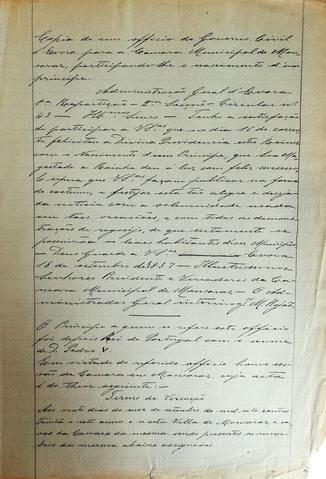 Copia de um officio do Governo Civil
d'Evora para a Camara Municipal de Mon-
saraz, participando-lhe o nascimento d'um
principe.
Administração Geral d'Evora
1ª Repartição - 2ª Secção - Circular nº
43 - Ill.mos Snres - Tenho a satisfação
de participar a VSªs que no dia 16 do corren-
te felicitou a Divina Providencia este Reino
com o Nascimento d'um Principe, que Sua Ma-
gestade a Rainha deu a luz com feliz successo.
E espera que VSªs façam publicar na forma
do costume, e festejar esta tão alegre e deseja-
da noticia com a solemnidade usada
em taes occasiões, e com todas as demons-
trações de regosijo, de que certamente se
possuirão os leaes habitantes desse Municipio.
Deus Guarde a VSªs Evora
18 de Setembro de 1837 - Illustrissimos
Senhores Presidente e Vereadores da Ca-
mara Municipal de Monsaraz - O Ad-
ministrador Geral interino, J. M. Rojão.
O Principe a quem se refere este officio
foi depois Rei de Portugal com o nome
de D. Pedro V.
Em virtude do referido officio houve ses-
são de Camara em Monsaraz, cuja acta
é do theor seguinte: -
Termo de Vereação
Aos vinte dias do mez de setembro de mil oito centos
trinta e sete annos e nesta Villa de Monsaraz e ca-
sas da Camara da mesma sendo presentes os mem-
bros da mesma abaixo assignados